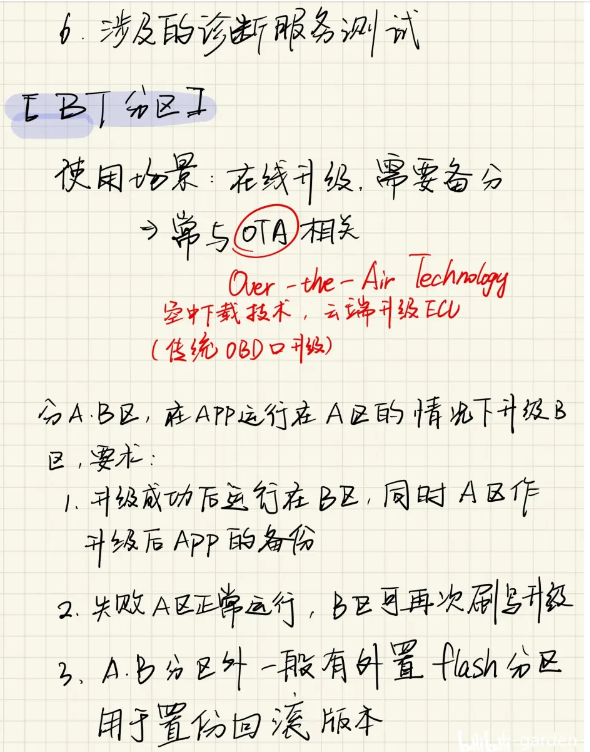 6. 涉及的诊断服务测试
【BT分区】
使用场景：在线升级，需要备分
→ 常与 OTA 相关
Over-the-Air Technology
空中下载技术，云端升级ECU
(传统OBD口升级)
分A.B区，在APP运行在A区的情况下升级B
区，要求：
1. 升级成功后运行在B区，同时A区作
升级后App的备份
2. 失败A区正常运行，B区可再次刷写升级
3. A.B分区外一般有外置flash分区
用于置份回滚版本
bilibili